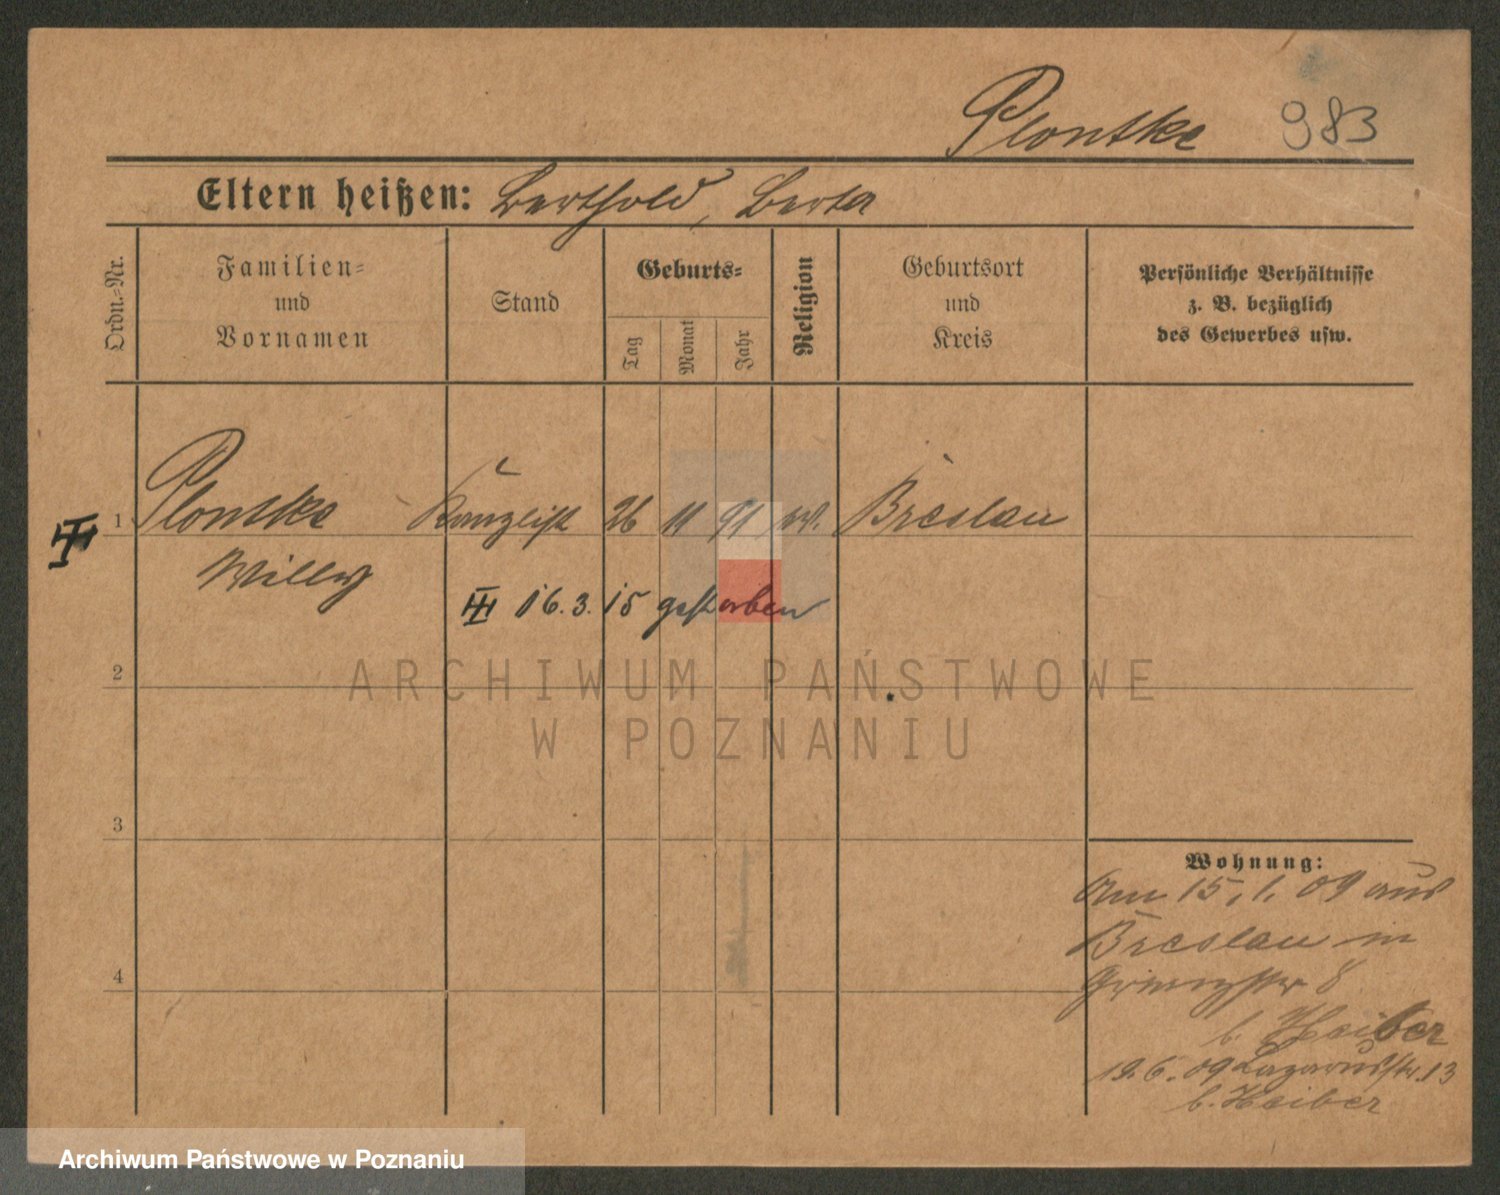 Plontke 983
Eltern heißen: Berthold, Berta
Ordn.-Nr.
Familien-
und
Vornamen
Stand
Geburts-
Tag
Monat
Jahr
Religion
Geburtsort
und
Kreis
Persönliche Verhältnisse
z. B. bezüglich
des Gewerbes usw.
1 Plontke Kanzlist 26 11 91 ev. Breslau
Willy
16.3.15 gestorben
2
ARCHIWUM PAŃSTWOWE
W POZNANIU
3
Wohnung:
Am 15.1.09 aus
Breslau in
8
4
b. Heiber
19.6.09 Lazarusstr. 13
b. Heiber
Archiwum Państwowe w Poznaniu